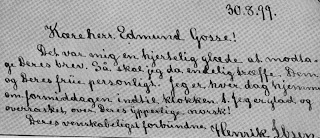 30.8.99.
Kære herr Edmund Gosse!
Det var mig en hjertelig glæde at modta-
ge Deres brev. Så skal jeg da endelig træffe Dem
og Deres frue personligt. Jeg er hver dag hjemme
om formiddagen indtil klokken 1. Jeg er glad og
overrasket over Deres ypperlige norsk!
Deres venskabeligst forbundne
Henrik Ibsen.